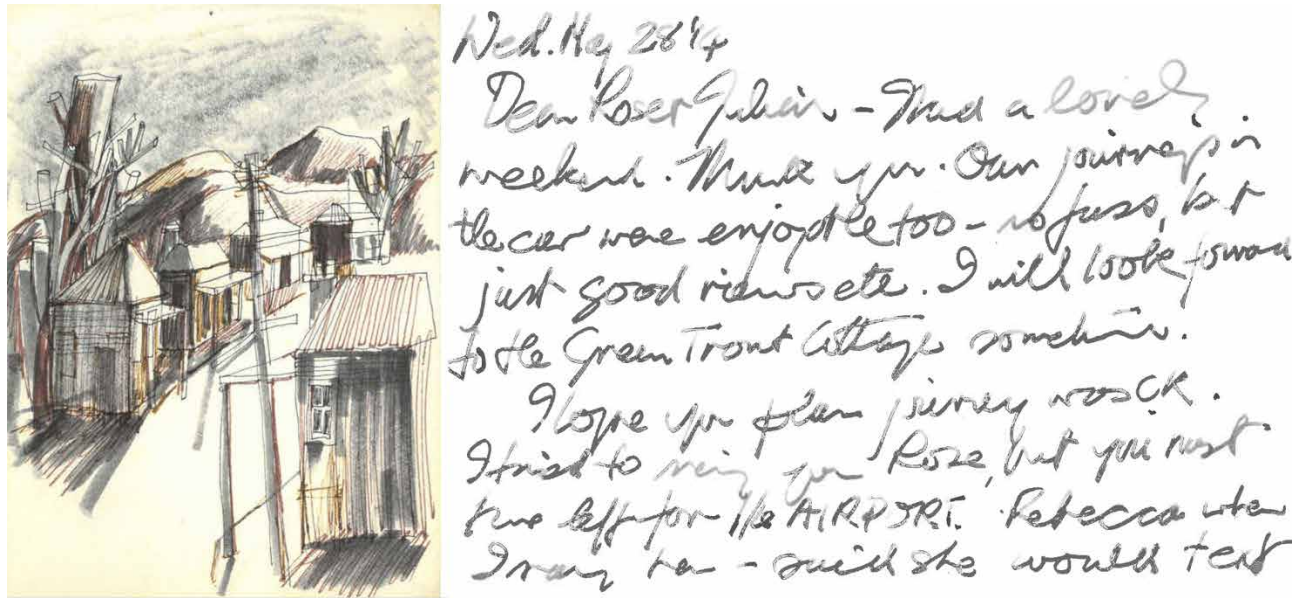 Wed. May 28th
Dear Rose & Julian – I had a lovely
weekend. Thank you. Our journeys in
the car were enjoyable too – no fuss, but
just good views etc. I will look forward
to the Green Trout Cottage sometime.
I hope your plane journey was OK.
I tried to ring you Rose, but you must
have left for the AIRPORT. Rebecca when
I rang her – said she would text